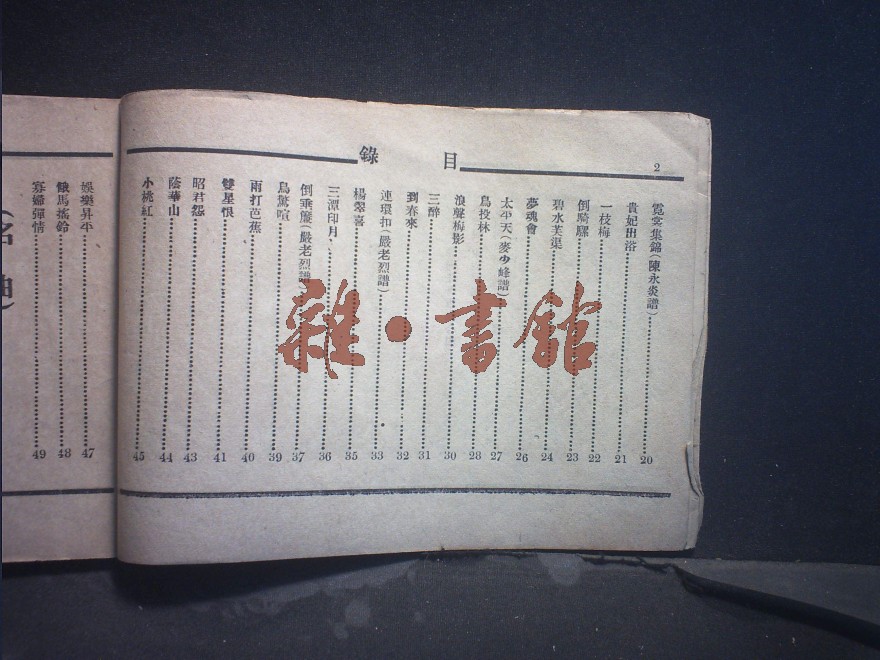 目錄
2
霓裳集錦(陳永炎譜)……20
貴妃出浴……21
一枝梅……22
倒騎驢……23
碧水芙渠……24
夢魂會……26
太平天(麥少峰譜)……27
鳥投林……28
浪聲梅影……30
三醉……31
到春來……32
連環扣(嚴老烈譜)……33
楊翠喜……35
三潭印月……36
倒垂簾(嚴老烈譜)……37
鳥驚喧……39
雨打芭蕉……40
雙星恨……41
昭君怨……43
蔭華山……44
小桃紅……45
娛樂昇平……47
餓馬搖鈴……48
寡婦彈情……49
(名曲)
雜·書館